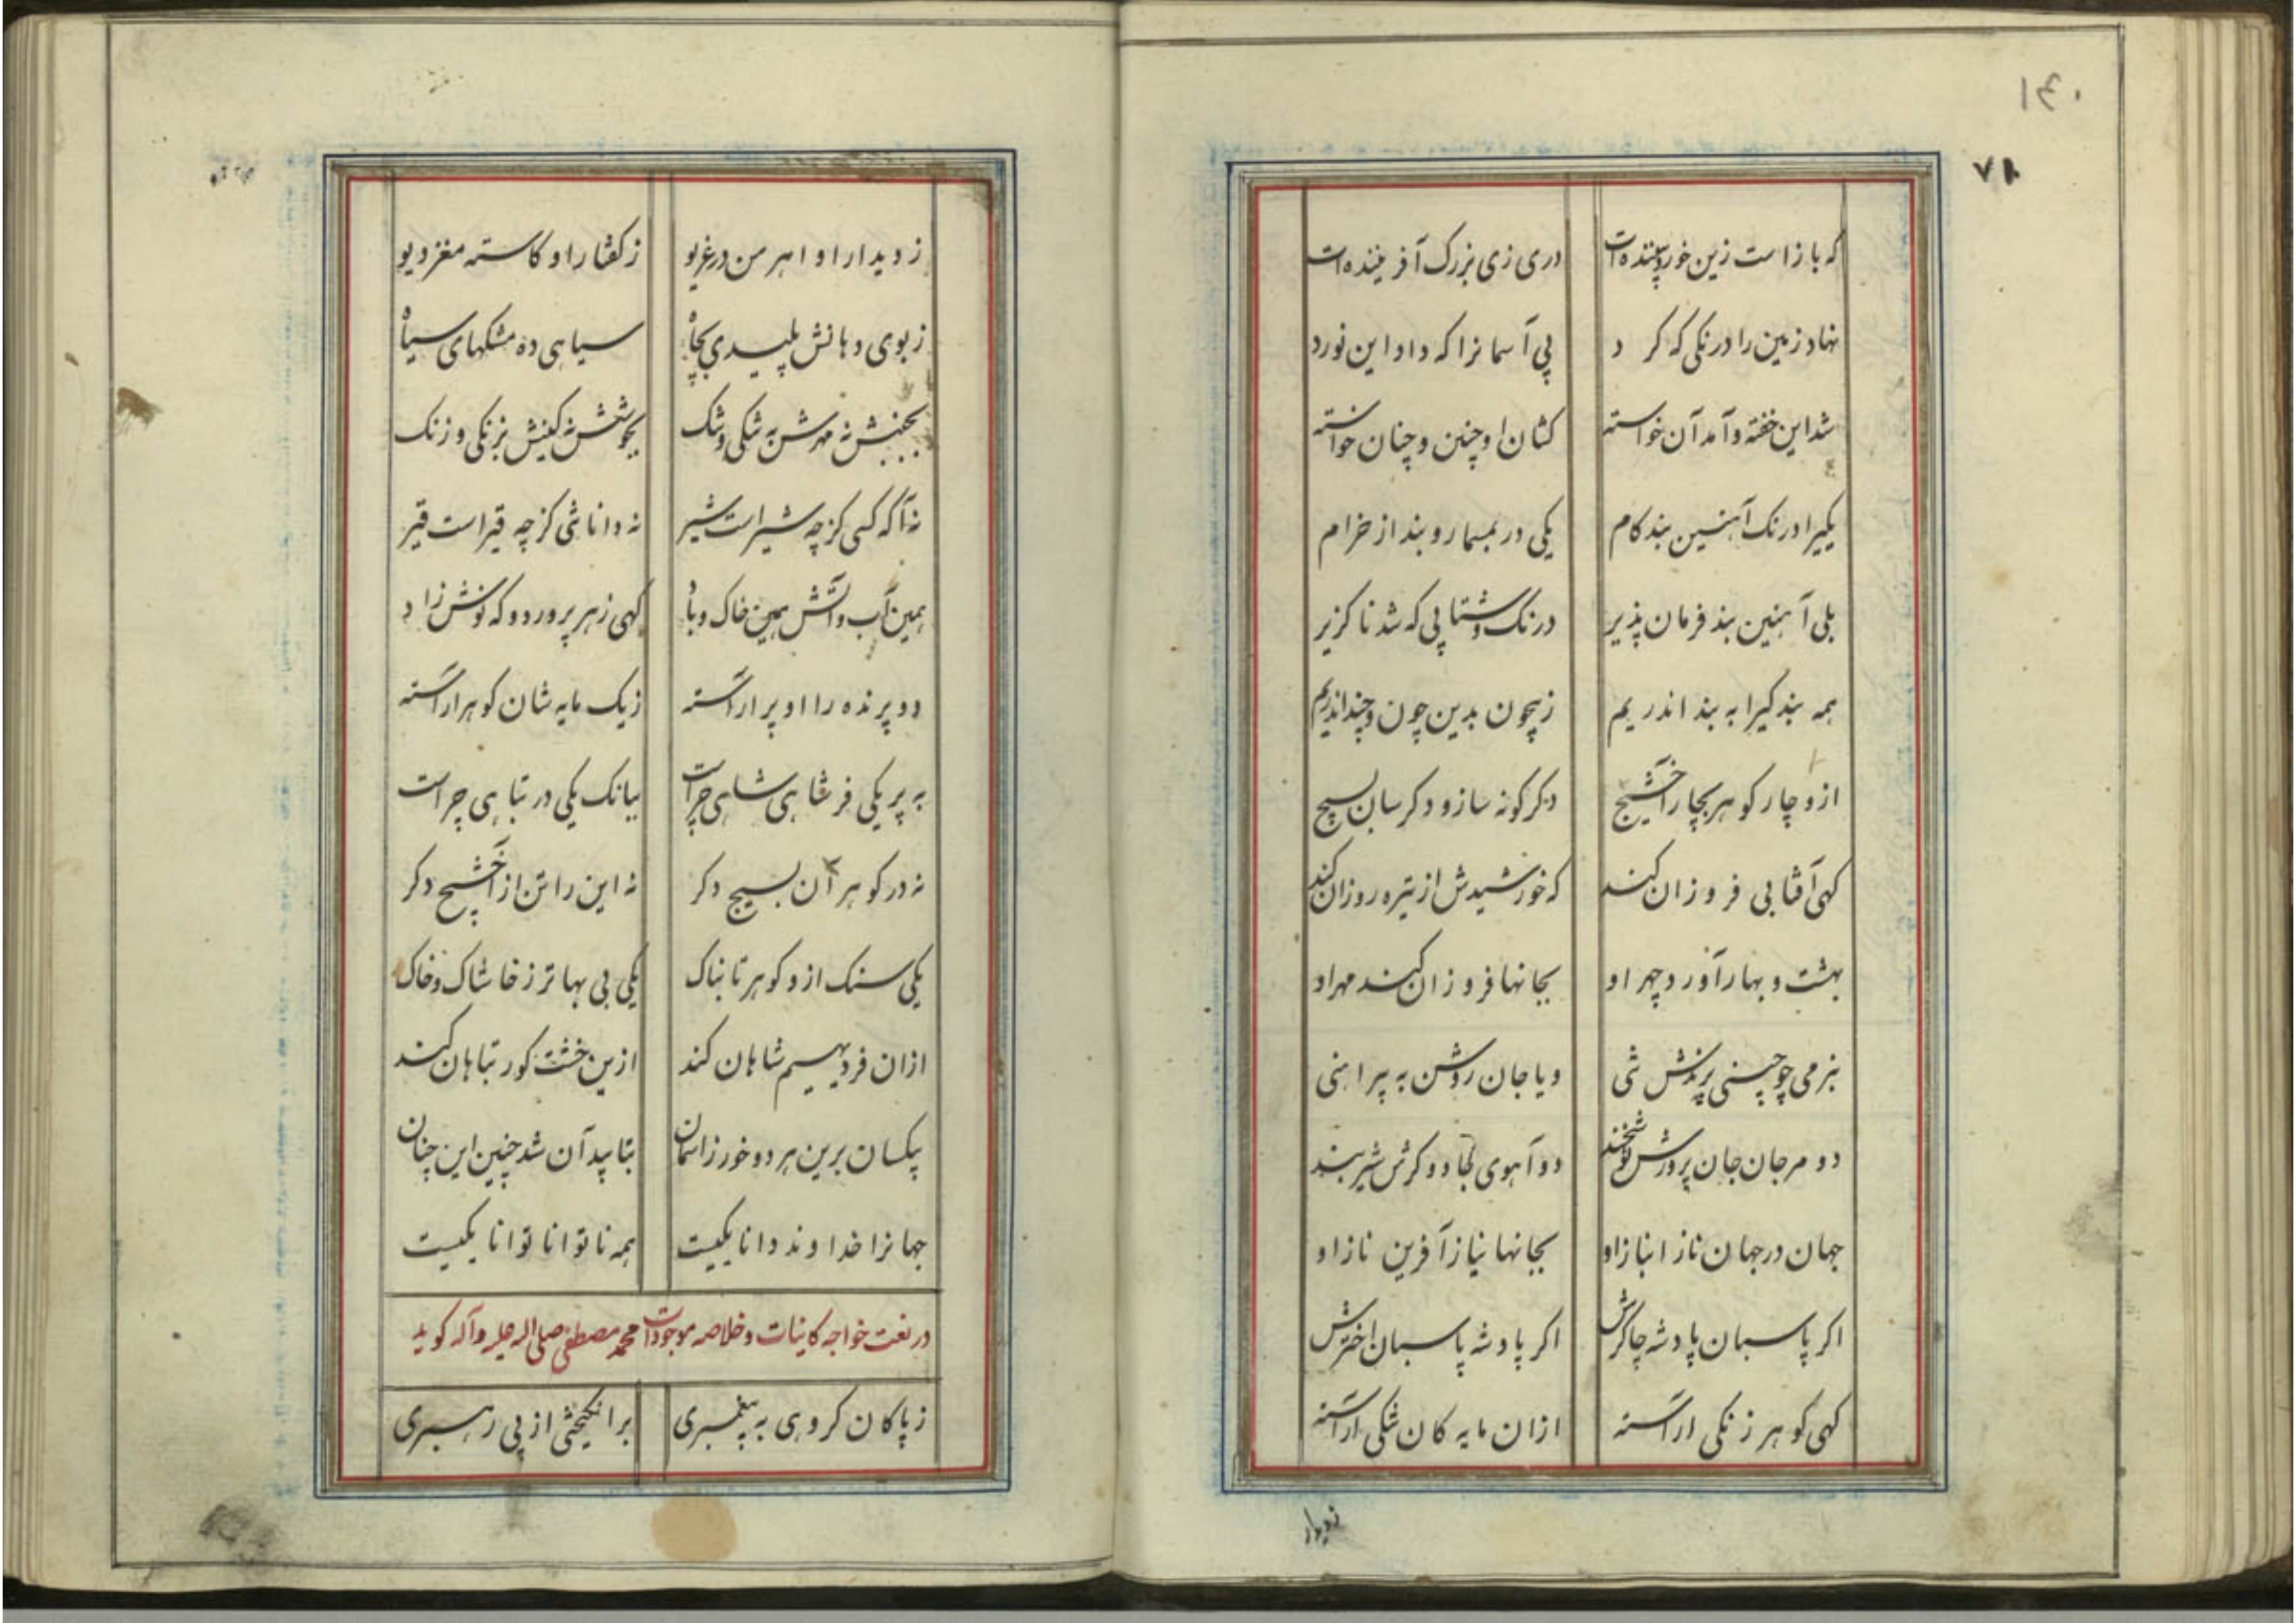 ۱۴۰
۷۸
که باز است زین خورد بیننده‌ات دری زی بزرگ آفریننده‌ات
نهاد زمین را درنگی که کرد پی آسمانرا که داد این نورد
شد این خفته و آمد آن خواسته کشان او چنین و چنان خواسته
یکیرا درنگ آهنین بند کام یکی در بمسمار و بند از خرام
بلی آهنین بند فرمان پذیر درنگ و شتابی که شد ناگزیر
همه بند گیرا به بند اندریم ز بیچون بدین چون و چند اندریم
ازو چار گوهر بچار آخشیج دگر گونه ساز و دگر سان بسیج
گهی آفتابی فروزان کند که خورشیدش از تیره روزان کند
بهشت و بهار آورد چهر او بجانها فروزان کند مهر او
بنرمی چو چینی پرندش تنی و یا جان روشن به پیراهنی
دو مرجان جان پرورش نوشخند دو آهوی جادوگرش شیربند
جهان در جهان ناز انباز او بجانها نیاز آفرین ناز او
اگر پاسبان پادشه چاکرش اگر پادشه پاسبان اخترش
گهی گوهر زنگی اراسته ازان مایه کان شکی اراسته
زدیدار
ز دیدار او اهرمن در غریو ز گفتار او کاسته مغز دیو
ز بوی دهانش پلیدی بچاه سیاهی ده مشکهای سیاه
بجنبش نه مهرش به شکی و شک بجوشش نه کینش بزنگی و زنگ
نه آگه کسی کز چه شیر است شیر نه داناشی کز چه قیر است قیر
همین آب و آتش همین خاک و باد گهی زهر پرورد و گه نوش زاد
دو پرنده را او پر اراسته ز یک مایه شان گوهر اراسته
به پر یکی فر شاهی چراست ببانگ یکی در تباهی چراست
نه در گوهر آن بسیج دگر نه این را تن از آخشیج دگر
یکی سنگ ازو گوهر تابناک یکی بی بهاتر ز خاشاک و خاک
ازان فر دیهیم شاهان کند ازین خشت گور تباهان کند
یکسان برین هر دو خور زاسمان بتابید آن شد چنین این چنان
جهانرا خداوند دانا یکیست همه ناتوانا توانا یکیست
در نعت خواجه کاینات و خلاصه موجودات محمد مصطفی صلی اله علیه و آله گوید
ز پاکان گروهی به پیغمبری برانگیختی از پی رهبری